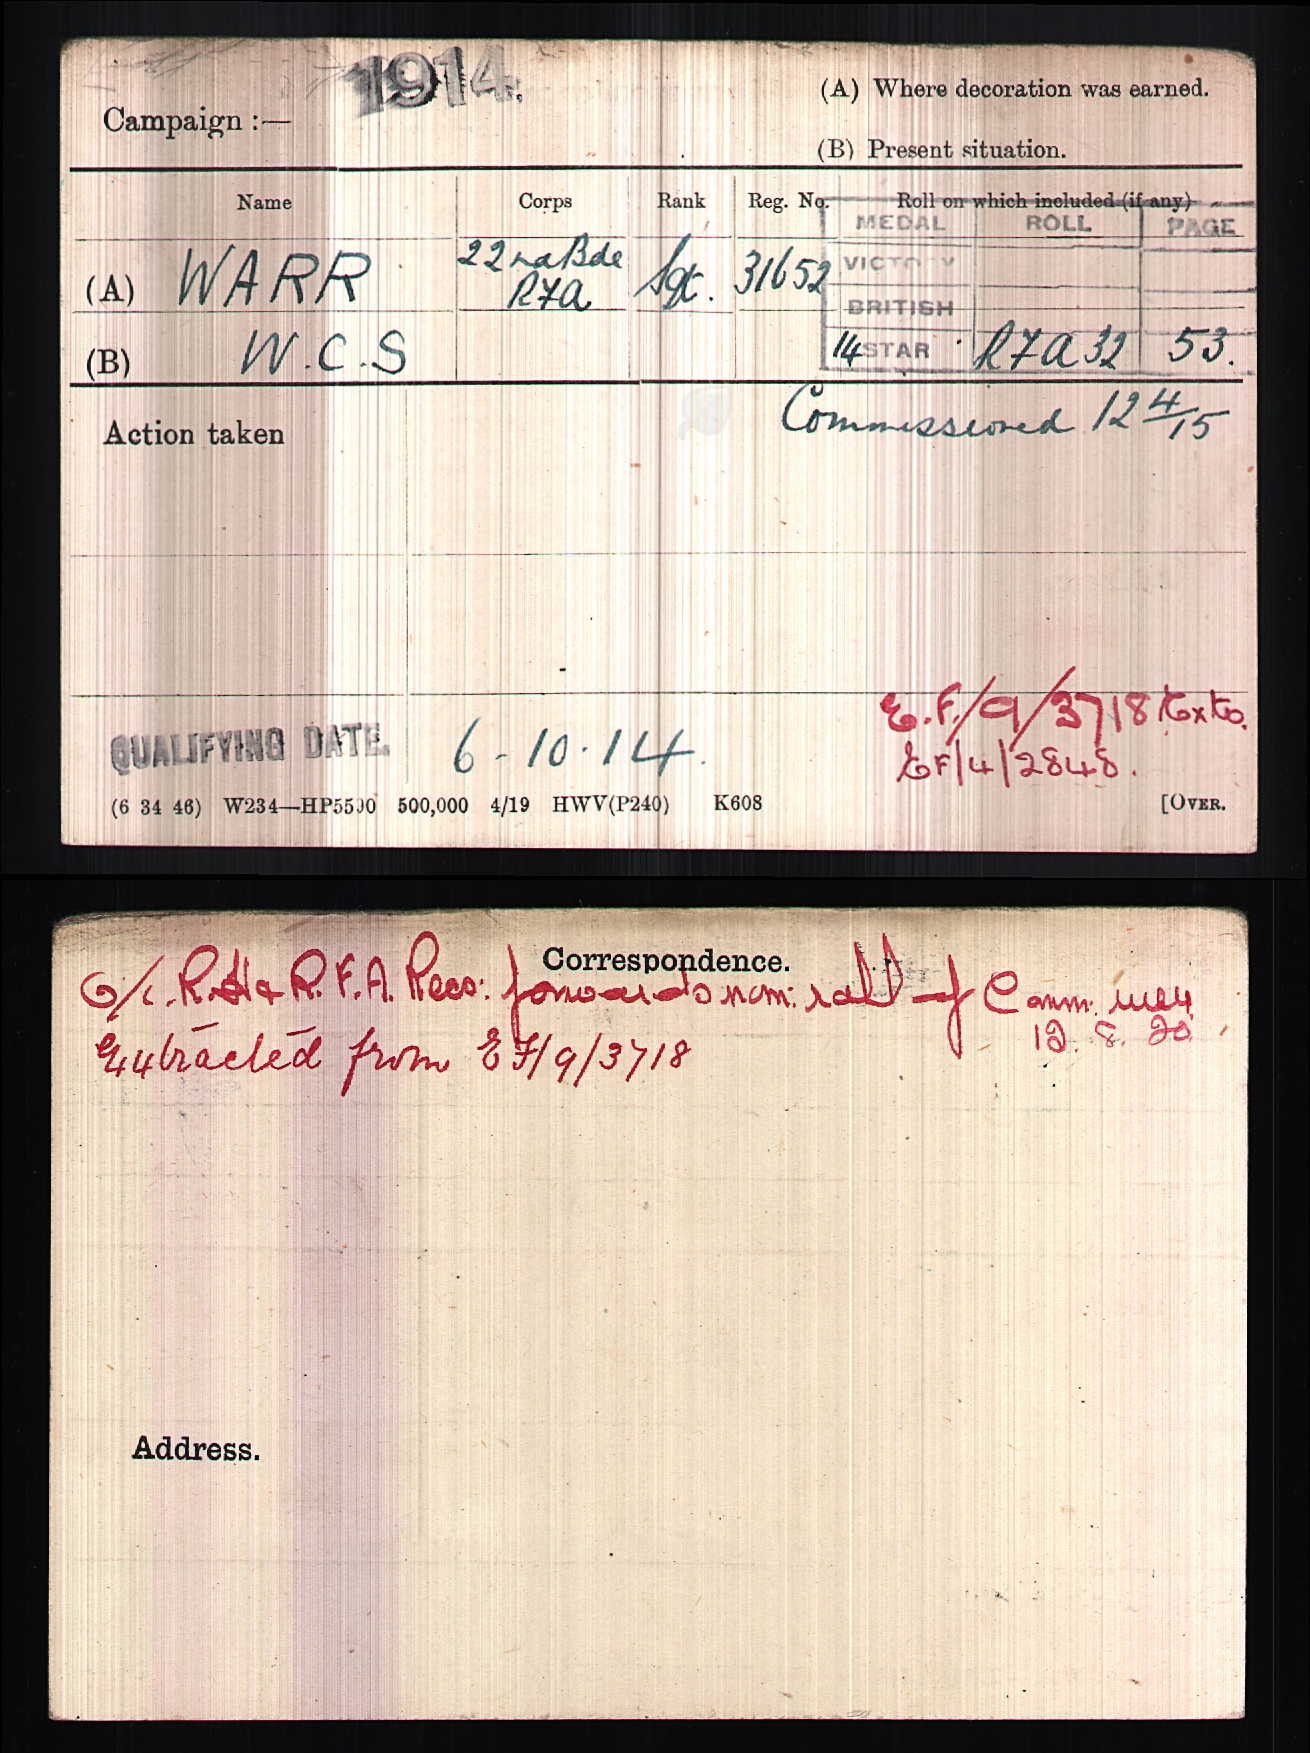 1914.
Campaign :—
(A) Where decoration was earned.
(B) Present situation.
Name Corps Rank Reg. No. Roll on which included (if any)
MEDAL ROLL PAGE
(A) WARR 22nd Bde RFA Sgt. 31652
VICTORY
BRITISH
(B) W.C.S 14 STAR RFA 32 53.
Action taken
Commissioned 12 4/15
E.F./9/3718 Exts.
EF/4/2848.
QUALIFYING DATE. 6-10-14.
(6 34 46) W234—HP5590 500,000 4/19 HWV(P240) K608 [OVER.
Correspondence.
O/c. R.H & R.F.A. Recs: forwards nom: roll of Comm:
12.8.20.
Extracted from EF/9/3718
Address.